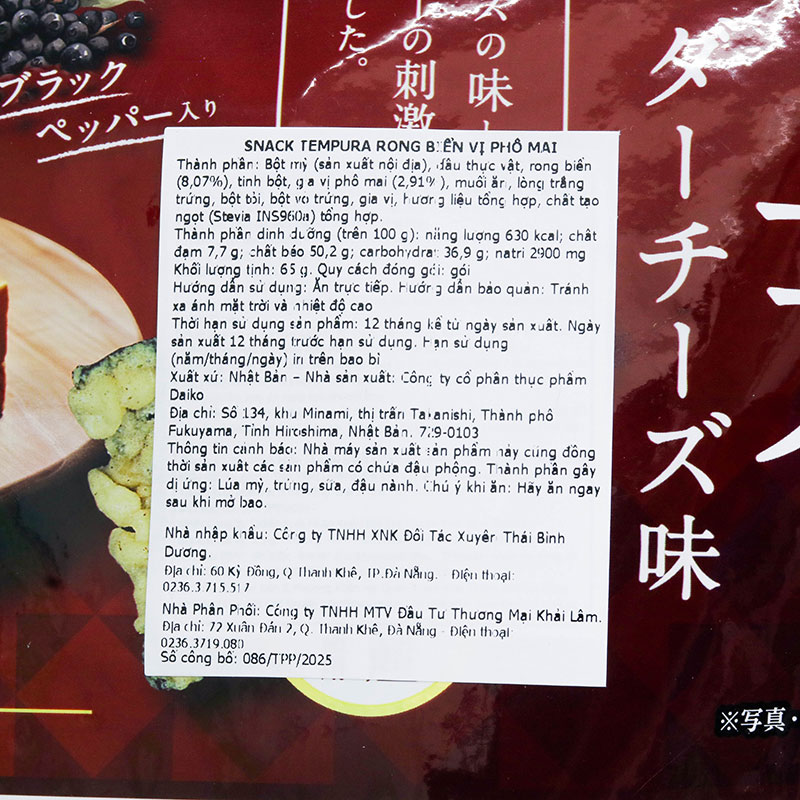 ブラック
ペッパー入り
の味
の刺激
した。
ダーチーズ味
SNACK TEMPURA RONG BIỂN VỊ PHÔ MAI
Thành phần: Bột mỳ (sản xuất nội địa), dầu thực vật, rong biển
(8,07%), tinh bột, gia vị phô mai (2,91%), muối ăn, lòng trắng
trứng, bột tỏi, bột vỏ trứng, gia vị, hương liệu tổng hợp, chất tạo
ngọt (Stevia INS960a) tổng hợp.
Thành phần dinh dưỡng (trên 100 g): năng lượng 630 kcal; chất
đạm 7,7 g; chất béo 50,2 g; carbohydrat 36,9 g; natri 2900 mg
Khối lượng tịnh: 65 g. Quy cách đóng gói: gói
Hướng dẫn sử dụng: Ăn trực tiếp. Hướng dẫn bảo quản: Tránh
xa ánh mặt trời và nhiệt độ cao
Thời hạn sử dụng sản phẩm: 12 tháng kể từ ngày sản xuất. Ngày
sản xuất 12 tháng trước hạn sử dụng. Hạn sử dụng
(năm/tháng/ngày) in trên bao bì
Xuất xứ: Nhật Bản – Nhà sản xuất: Công ty cổ phần thực phẩm
Daiko
Địa chỉ: Số 134, khu Minami, thị trấn Takanishi, Thành phố
Fukuyama, Tỉnh Hiroshima, Nhật Bản. 729-0103
Thông tin cảnh báo: Nhà máy sản xuất sản phẩm này cũng đồng
thời sản xuất các sản phẩm có chứa đậu phộng. Thành phần gây
dị ứng: Lúa mỳ, trứng, sữa, đậu nành. Chú ý khi ăn: Hãy ăn ngay
sau khi mở bao.
Nhà nhập khẩu: Công ty TNHH XNK Đối Tác Xuyên Thái Bình
Dương.
Địa chỉ: 60 Kỳ Đồng, Q Thanh Khê, TP.Đà Nẵng. - Điện thoại:
0236.3.715.517
Nhà Phân Phối: Công ty TNHH MTV Đầu Tư Thương Mại Khải Lâm.
Địa chỉ: 72 Xuân Đán 2, Q. Thanh Khê, Đà Nẵng - Điện thoại:
0236.3719.080
Số công bố: 086/TPP/2025
※写真・